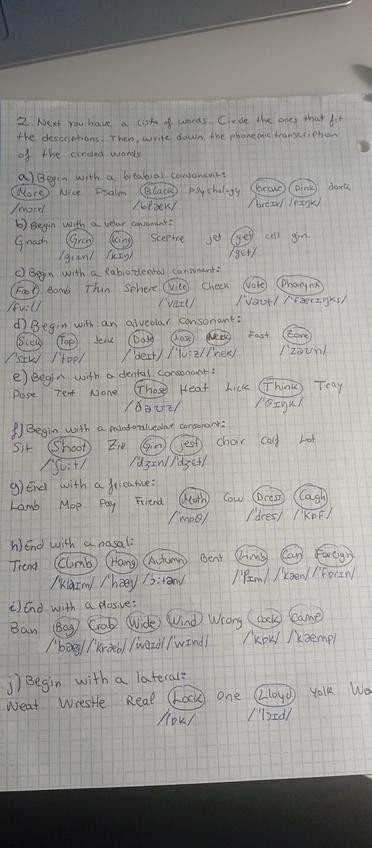 2. Next you have a lists of words. Circle the ones that fit
the descriptions. Then, write down the phonemic transcription
of the circled words
a) Begin with a bilabial consonant:
More Nice Psalm Black Psychology brave Pink dark
/mɔːr/ /blæk/ /breɪv/ /pɪŋk/
b) Begin with a velar consonant:
Gnash Grin King Sceptre jet get cell gin
/grɪn/ /kɪŋ/ /get/
c) Begin with a labiodental consonant:
Fool Bomb Thin Sphere Vile Check Vote Pharynx
/fuːl/ /'vaɪl/ /'vəʊt/ /'færɪŋks/
d) Begin with an alveolar consonant:
Sick Top Jerk Date Lose Neck Fast Zone
/'sɪk/ /'tɒp/ /'deɪt/ /'luːz/ /'nek/ /'zəʊn/
e) Begin with a dental consonant:
Dose Text None Those Heat Lick Think
/'ðəʊz/ /'θɪŋk/
f) Begin with a palatoalveolar consonant:
Sit Shoot Zip Gin jest chair Calf Lot
/'ʃuːt/ /'dʒɪn/ /'dʒet/
g) End with a fricative:
Lamb Mop Pay Friend Moth Cow Dress Cough
/'mɒθ/ /'dres/ /'kɒf/
h) End with a nasal:
Trend Climb Hang Autumn Bent Limb Can Foreign
/'klaɪm/ /'hæŋ/ /'ɔːtəm/ /'lɪm/ /'kæn/ /'fɒrɪn/
i) End with a plosive:
Ban Bag Crab Wide Wind Wrong Cock Came
/'bæg/ /'kræb/ /waɪd/ /'wɪnd/ /'kɒk/ /'kæmp/
j) Begin with a lateral:
Neat Wrestle Real Lock One Lloyd Yolk
/lɒk/ /'lɔɪd/